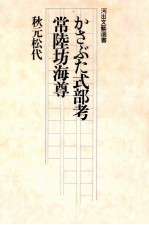 河出文藝選書
かさぶた式部考
常陸坊海尊
秋元松代